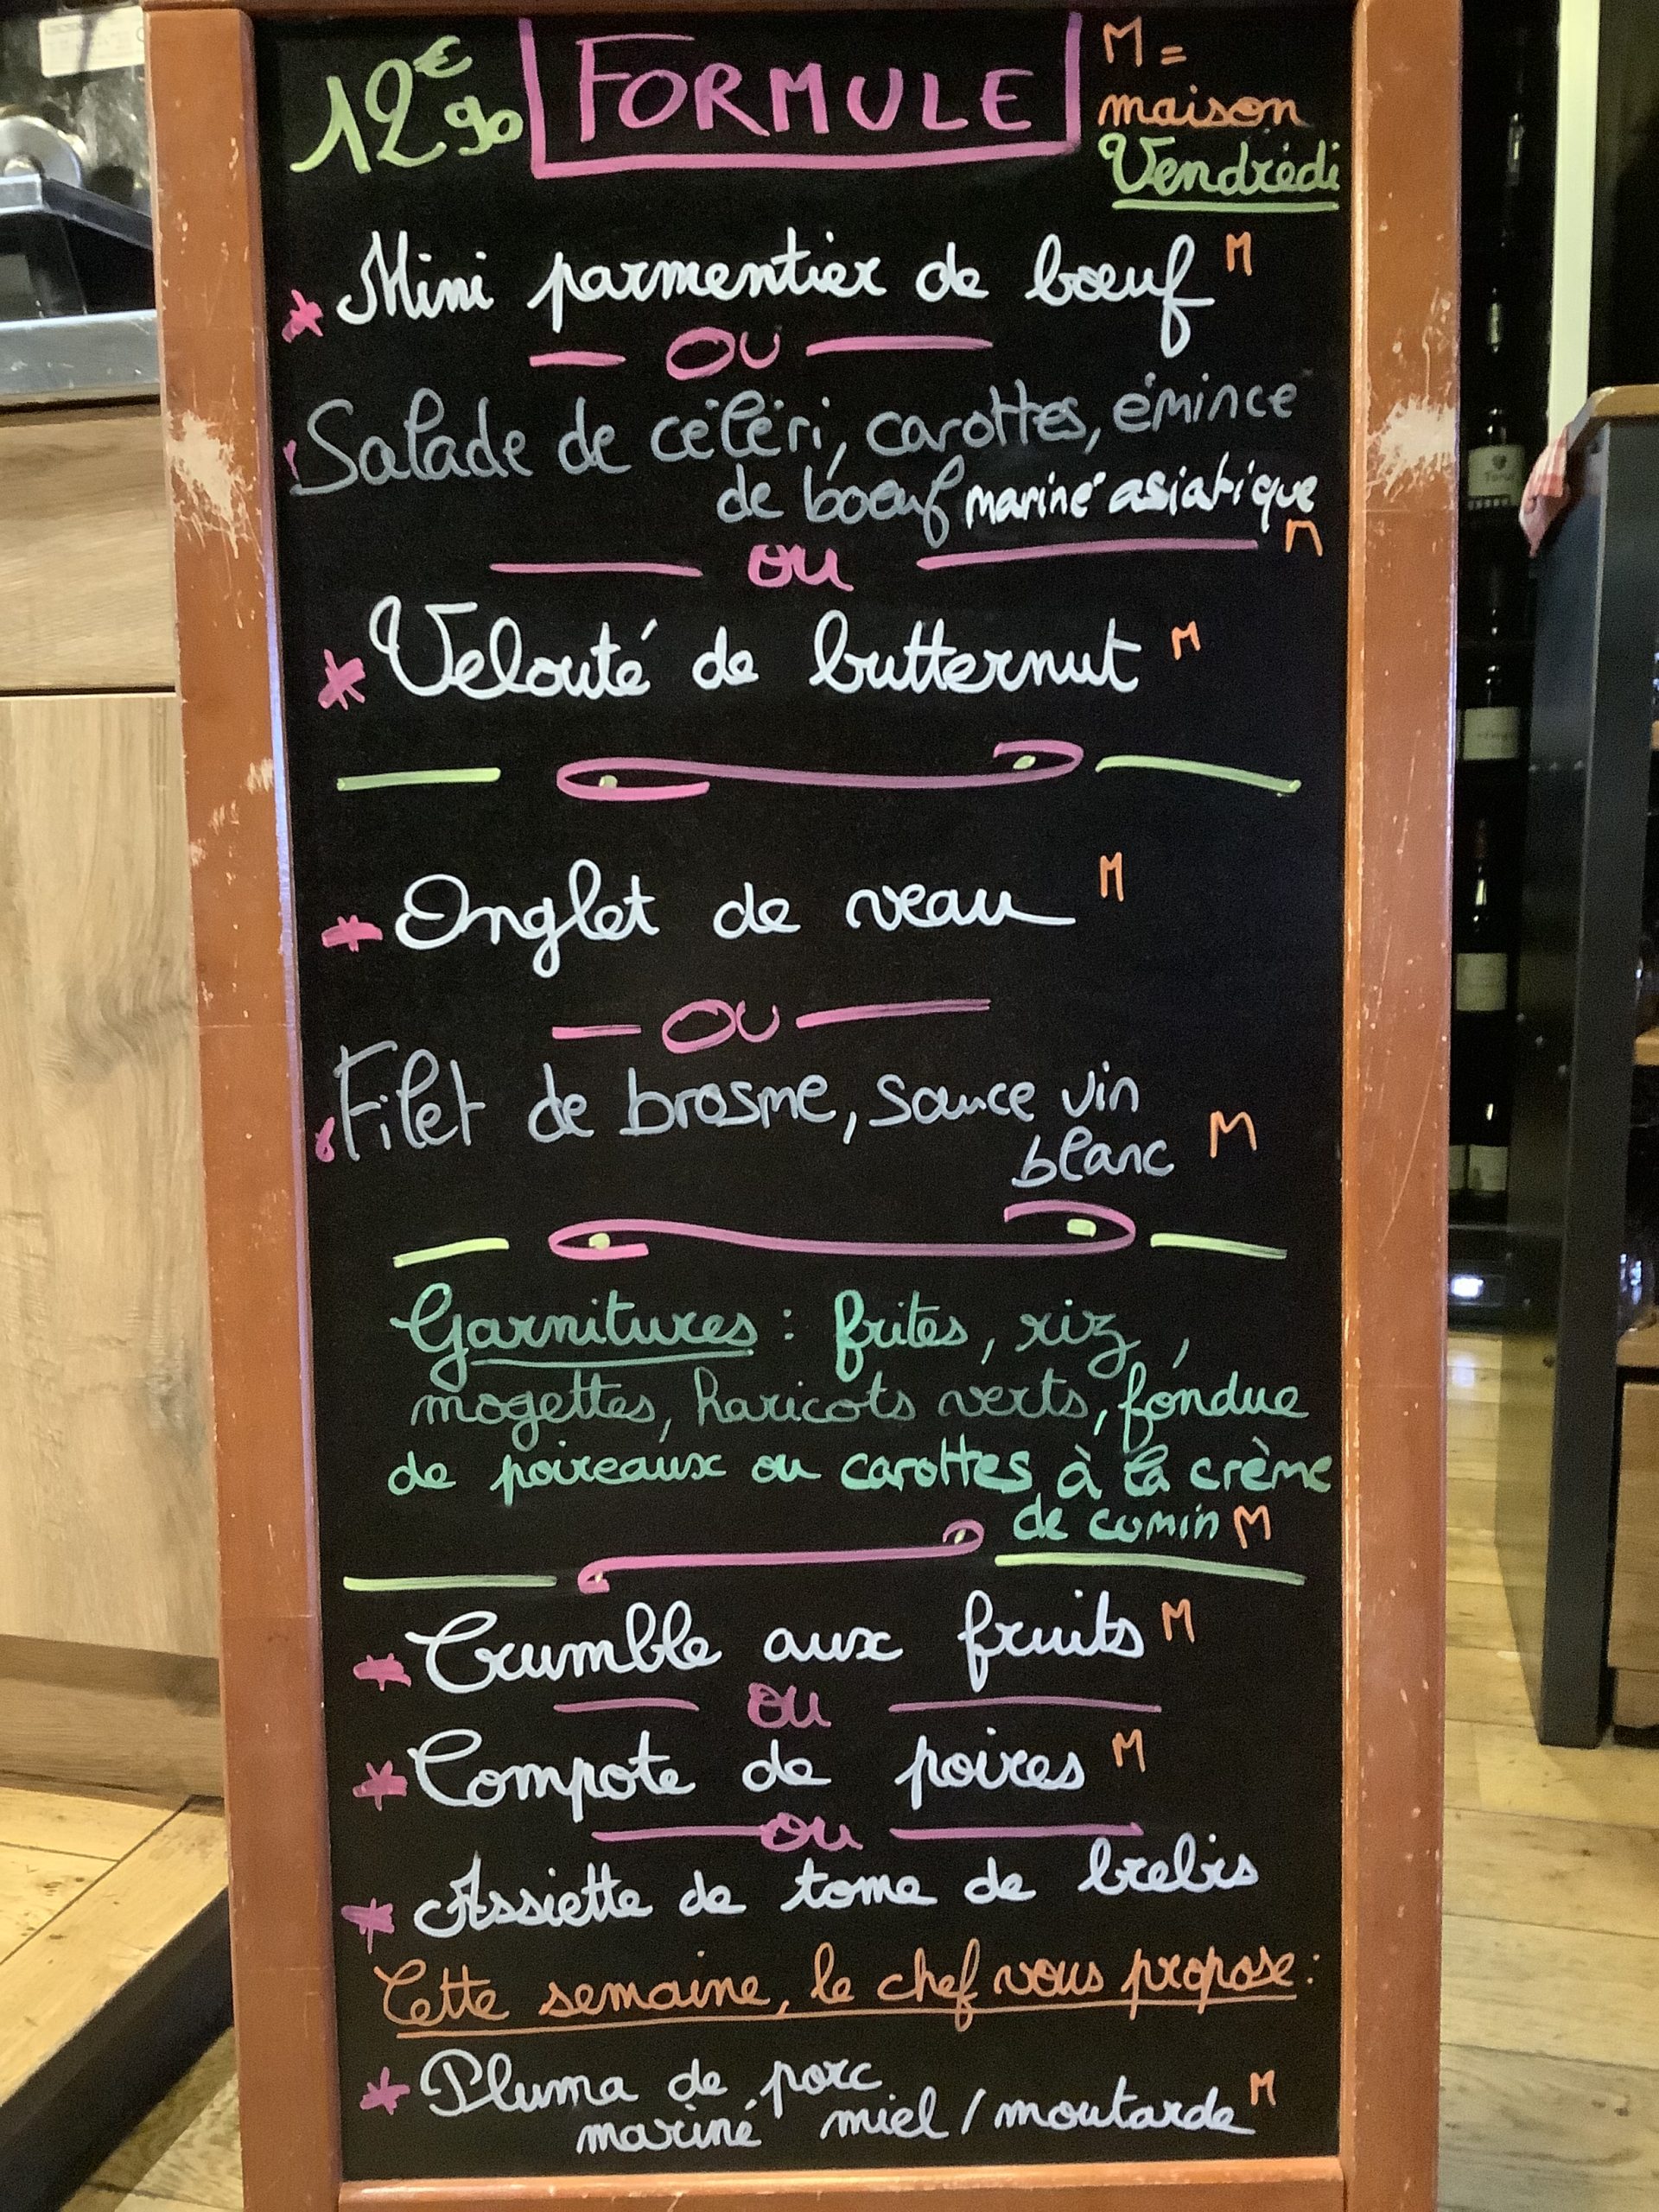 12€90 FORMULE M =
maison
Vendrédi
Mini parmentier de bœuf M
OU
Salade de céléri, carottes, émince
de bœuf mariné asiatique
M
ou
Velouté de butternut M
Onglet de veau M
OU
Filet de brosme, sauce vin
blanc M
Garnitures : frites, riz,
mogettes, haricots verts, fondue
de poireaux ou carottes à la crème
de cumin M
Crumble aux fruits M
ou
Compote de poires M
ou
Assiette de tome de brebis
Cette semaine, le chef vous propose :
Pluma de porc
mariné miel / moutarde M